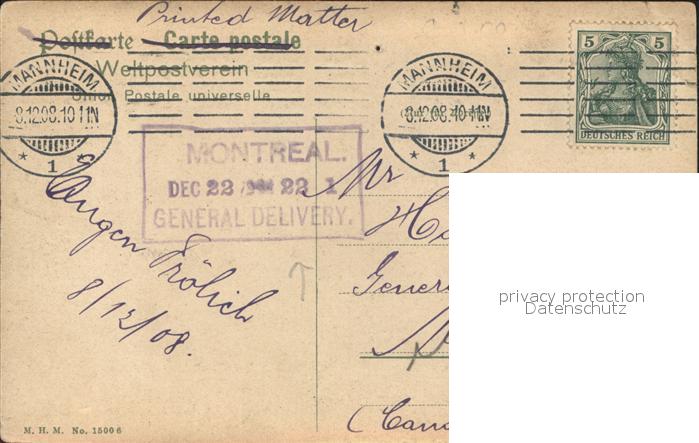 Printed Matter
Postkarte Carte postale
Weltpostverein
Union Postale universelle
MANNHEIM
8.12.08.10-11N
* 1 *
MANNHEIM
8.12.08.10-11N
* 1 *
5 5
DEUTSCHES REICH
MONTREAL.
DEC 22 22 1
GENERAL DELIVERY.
Mr
Eugen Frölich
8/12/08.
(Cana
privacy protection
Datenschutz
M. H. M. No. 15006